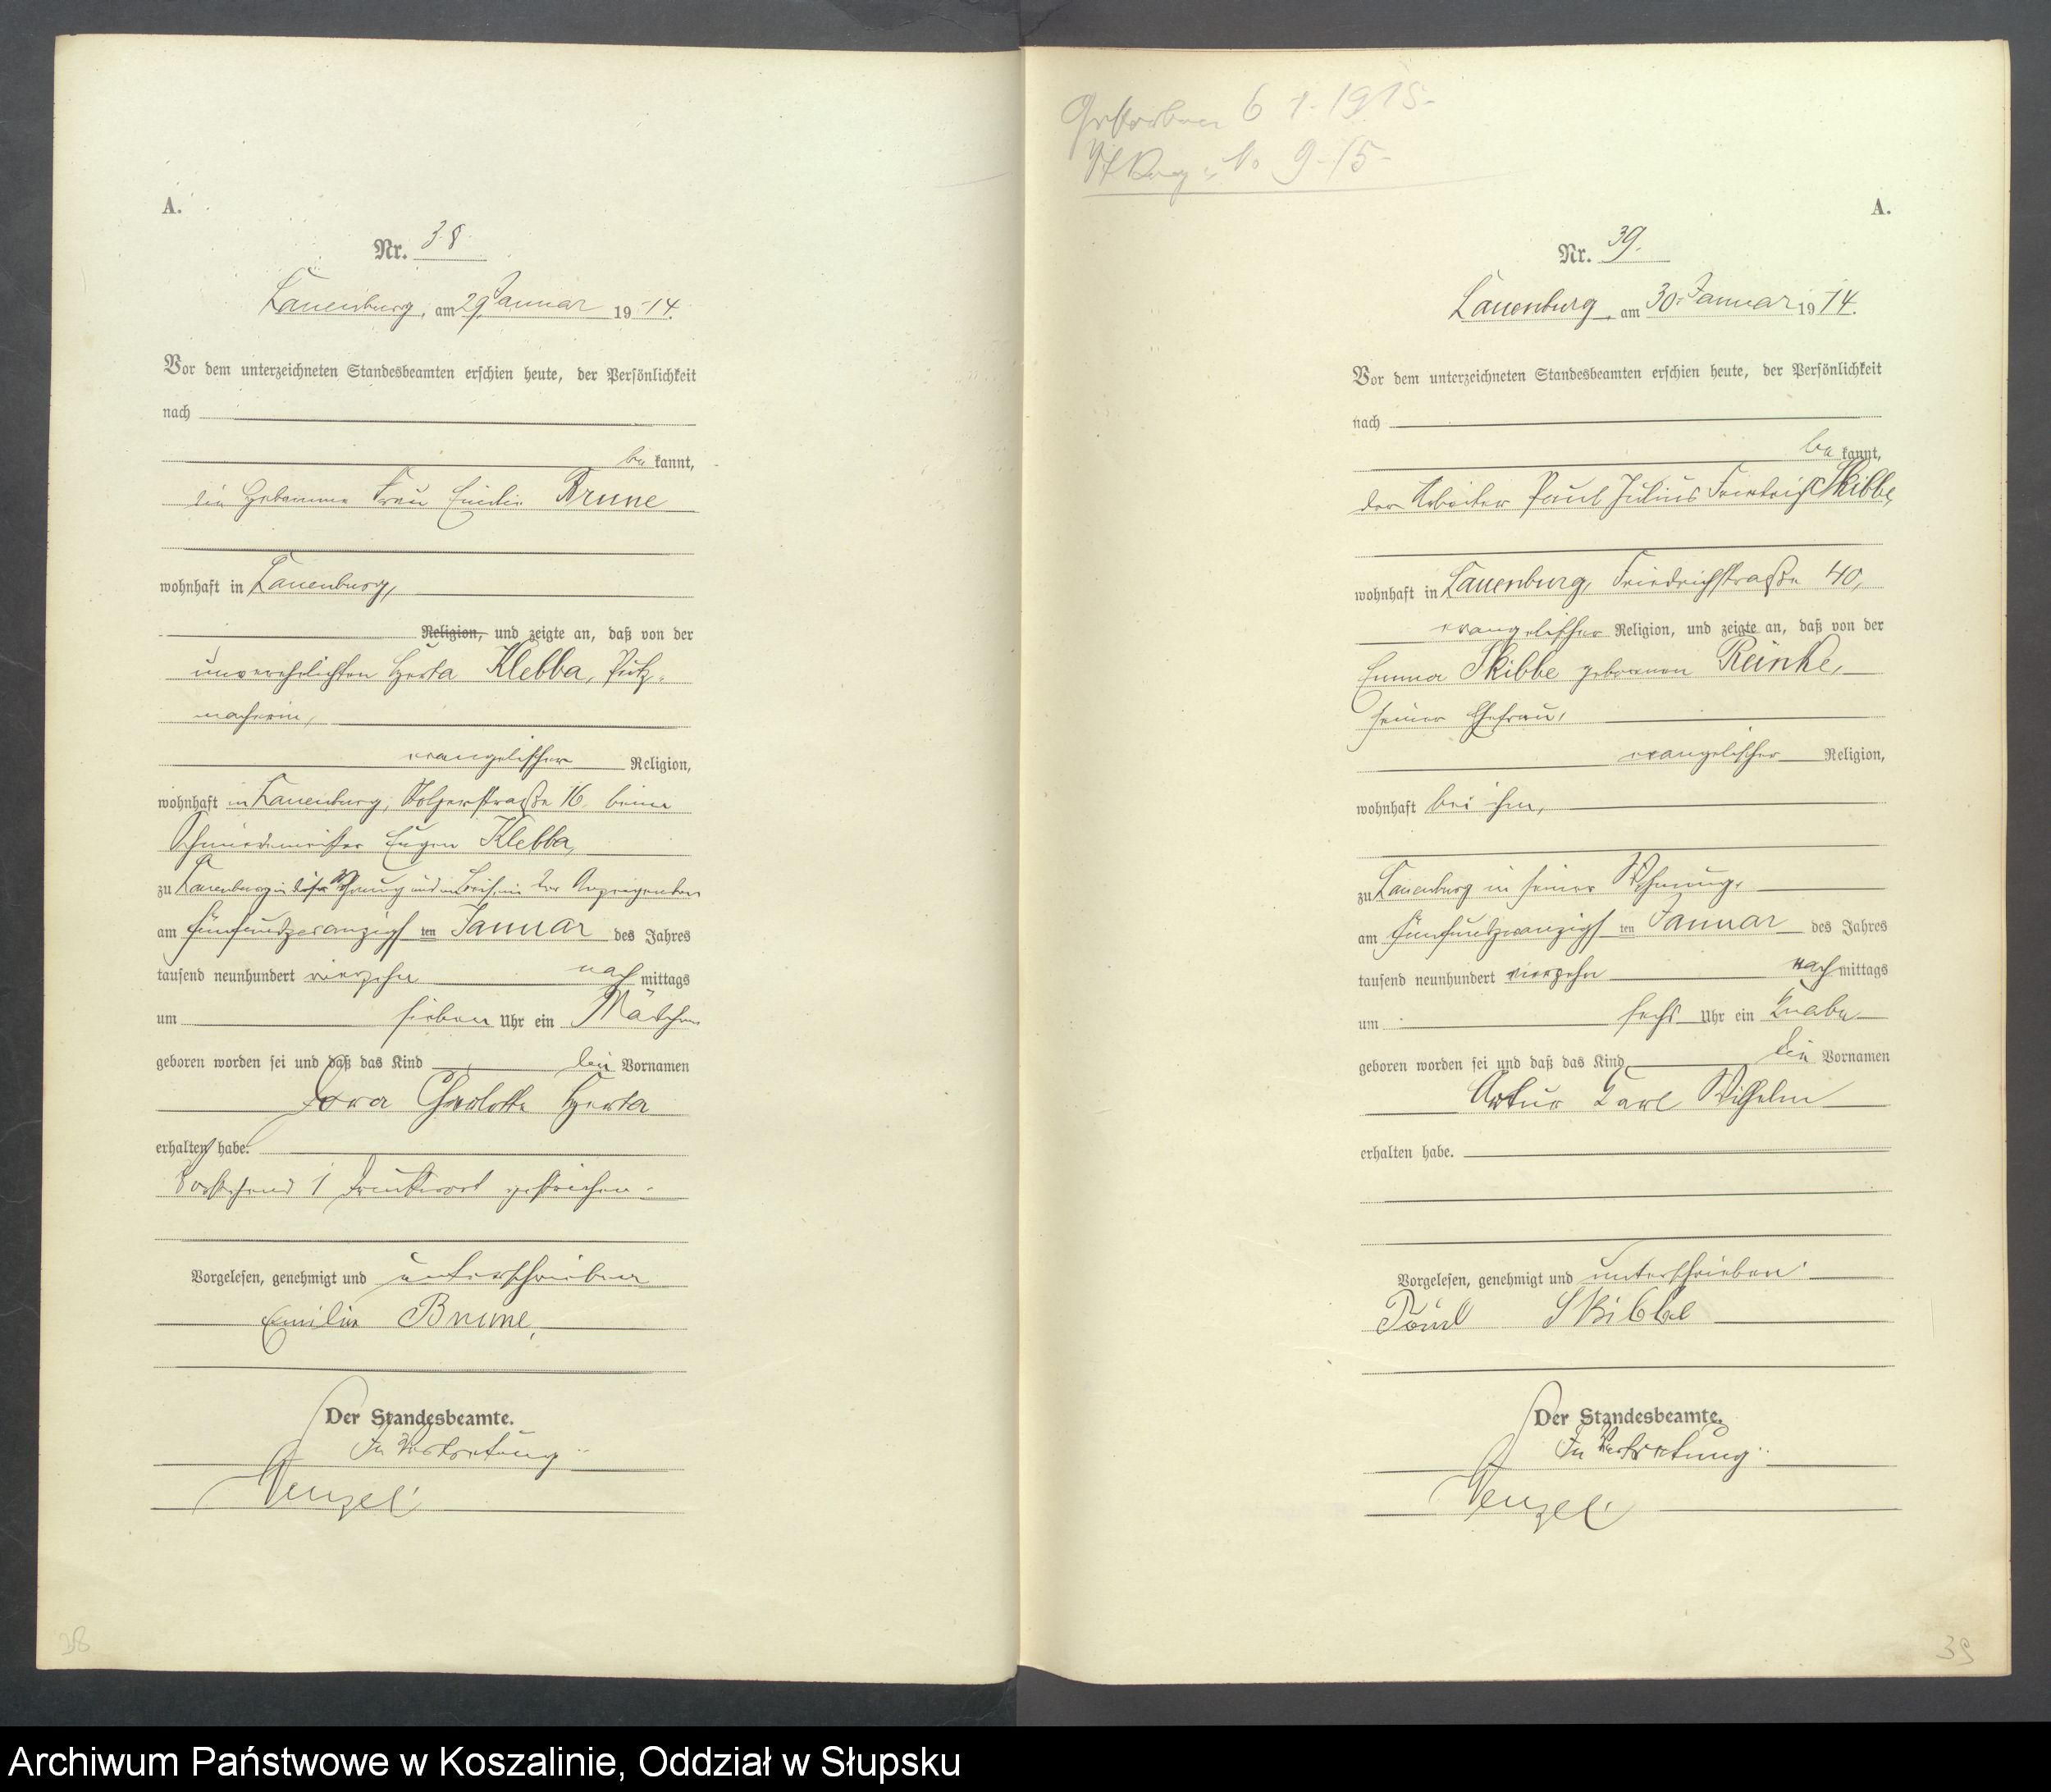 A.
Nr. 38.
Lauenburg, am 29. Januar 1914.
Vor dem unterzeichneten Standesbeamten erschien heute, der Persönlichkeit
nach
be kannt,
die Hebamme Frau Emilie Brune
wohnhaft in Lauenburg,
Religion, und zeigte an, daß von der
unverehelichten Herta Klebba, Putz-
macherin,
evangelischer Religion,
wohnhaft in Lauenburg, Stolperstraße 16 beim
Schmiedemeister Eugen Klebba,
zu Lauenburg in dieser Wohnung und im Beisein der Anzeigenden
am fünfundzwanzigsten Januar des Jahres
tausend neunhundert vierzehn nach mittags
um sieben Uhr ein Mädchen
geboren worden sei und daß das Kind die Vornamen
Dora Charlotte Herta
erhalten habe.
Vorstehend 1 Druckwort gestrichen.
Vorgelesen, genehmigt und unterschrieben
Emilie Brune,
Der Standesbeamte.
In Vertretung:
Wenzel
38
Gestorben 6 1. 1915.
St Reg: No 9-15-
A.
Nr. 39.
Lauenburg, am 30. Januar 1914.
Vor dem unterzeichneten Standesbeamten erschien heute, der Persönlichkeit
nach
be kannt,
der Arbeiter Paul Julius Friedrich Skibbe,
wohnhaft in Lauenburg, Friedrichstraße 40,
evangelischer Religion, und zeigte an, daß von der
Emma Skibbe geborenen Reinke,
seiner Ehefrau,
evangelischer Religion,
wohnhaft bei ihm,
zu Lauenburg in seiner Wohnung,
am fünfundzwanzigsten Januar des Jahres
tausend neunhundert vierzehn nach mittags
um sechs Uhr ein Knabe
geboren worden sei und daß das Kind die Vornamen
Artur Karl Wilhelm
erhalten habe.
Vorgelesen, genehmigt und unterschrieben
Paul Skibbe
Der Standesbeamte.
In Vertretung:
Wenzel
39
Archiwum Państwowe w Koszalinie, Oddział w Słupsku